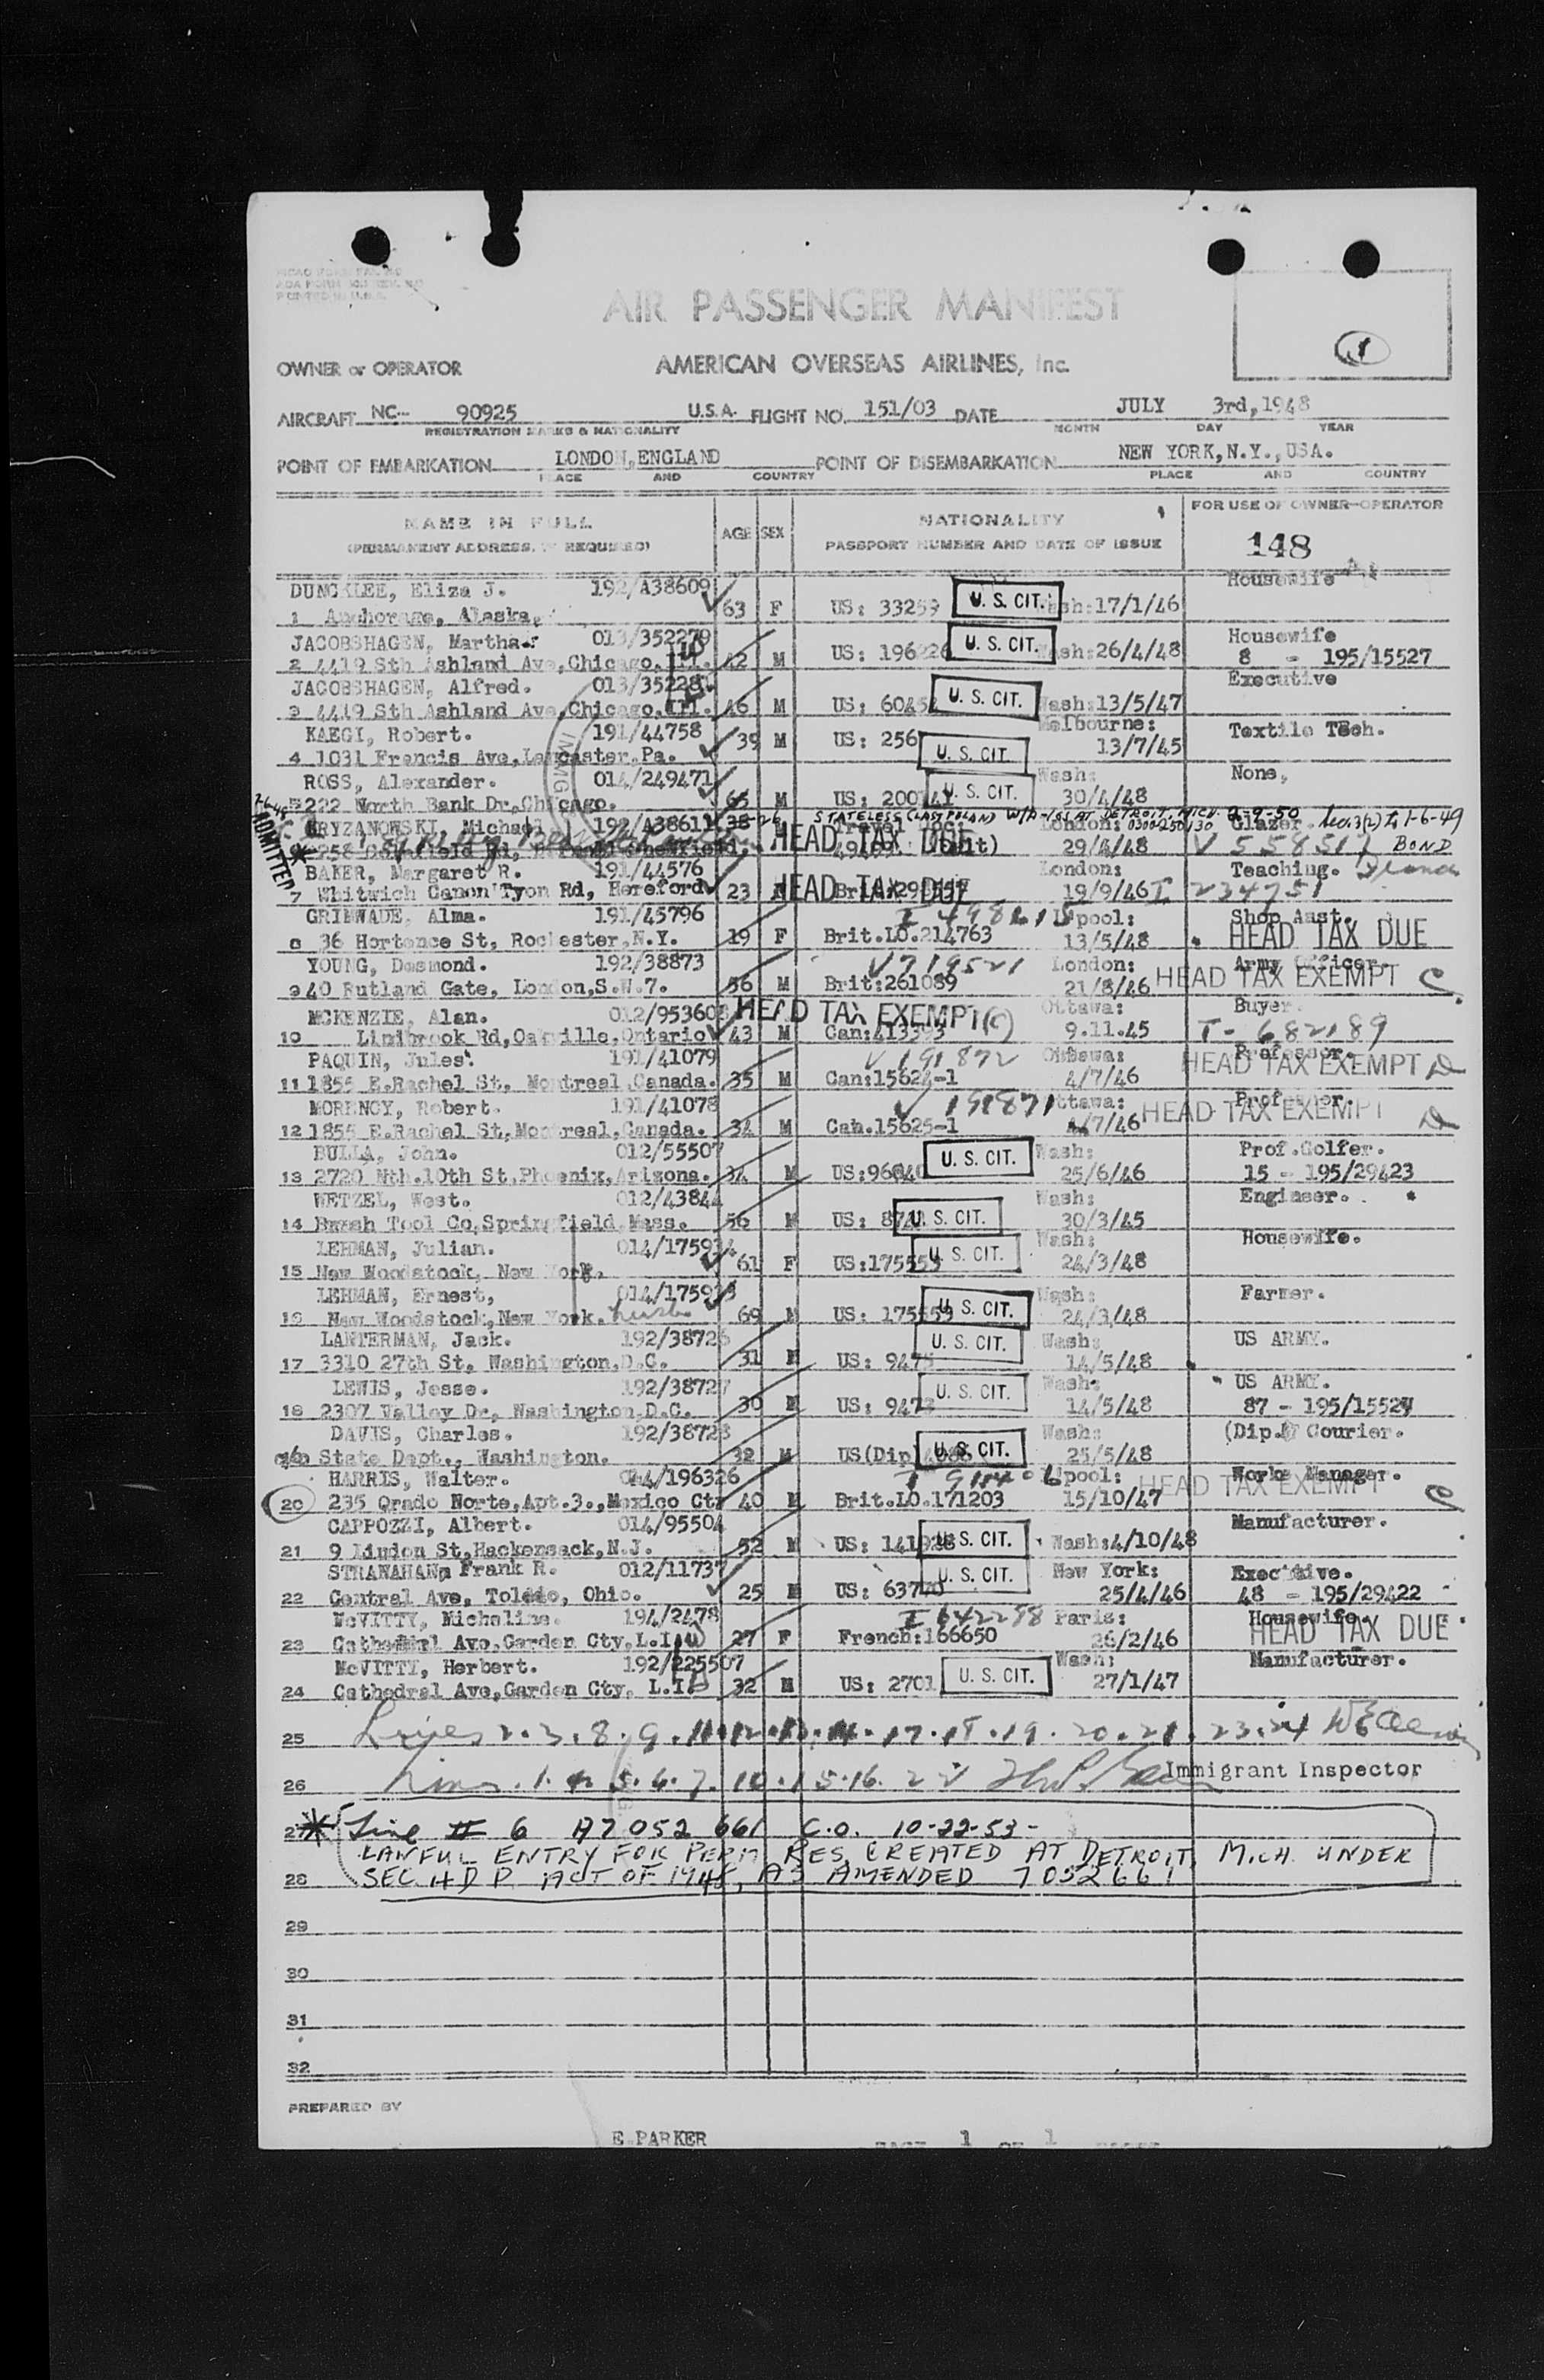 AIR PASSENGER MANIFEST
1
OWNER or OPERATOR AMERICAN OVERSEAS AIRLINES, Inc.
AIRCRAFT NC- 90925 U.S.A. FLIGHT NO. 151/03 DATE JULY 3rd,1948
REGISTRATION MARKS & NATIONALITY MONTH DAY YEAR
POINT OF EMBARKATION LONDON,ENGLAND POINT OF DISEMBARKATION NEW YORK,N.Y.,USA.
PLACE AND COUNTRY PLACE AND COUNTRY
NAME IN FULL AGE SEX NATIONALITY FOR USE OF OWNER-OPERATOR
(PERMANENT ADDRESS, IF REQUIRED) PASSPORT NUMBER AND DATE OF ISSUE 148
DUNCKLEE, Eliza J. 192/A38609 Housewife
1 Anchorage, Alaska, 63 F US: 33259 U. S. CIT. Wash:17/1/46
JACOBSHAGEN, Martha. 013/352279 Housewife
2 4419 Sth Ashland Ave,Chicago,Ill. 42 M US: 196226 U. S. CIT. Wash:26/4/48 8 - 195/15527
JACOBSHAGEN, Alfred. 013/352281 Executive
3 4419 Sth Ashland Ave,Chicago,Ill. 46 M US: 6045 U. S. CIT. Wash:13/5/47
KAEGI, Robert. 191/44758 Melbourne: Textile Tech.
4 1031 Francis Ave,Lancaster,Pa. 39 M US: 256 U. S. CIT. 13/7/45
ROSS, Alexander. 014/249471 Wash: None,
5 222 North Bank Dr,Chicago. 65 M US: 200741 U. S. CIT. 30/4/48
STATELESS (LAST POLAND) AT DETROIT, MICH. 2-9-50
KRYZANOWSKI, Michael 192/A38611 38-26 Travel Doc: London: 0300-250130 Glazer. Sec.3(2) to 1-6-49
ADMITTED HEAD TAX DUE 29/4/48 V 558517 BOND
BAKER, Margaret R. 191/44576 London: Teaching.
7 Whitwich Canon Tyon Rd, Hereford 23 HEAD TAX DUE 19/9/46 I 234751
GRIMWADE, Alma. 191/45796 I 498215 L'pool: Shop Asst.
8 36 Hortence St, Rochester,N.Y. 19 F Brit.LO.214763 13/5/48 HEAD TAX DUE
YOUNG, Desmond. 192/38873 V719521 London: Army Officer.
9 40 Rutland Gate, London,S.W.7. 56 M Brit:261089 21/8/46 HEAD TAX EXEMPT C
MCKENZIE, Alan. 012/953608 HEAD TAX EXEMPT (C) Ottawa: Buyer.
10 Linibrook Rd,Oakville,Ontario 43 M Can:413393 9.11.45 T- 682189
PAQUIN, Jules. 191/41079 V 191872 Ottawa: Professor.
11 1855 E.Rachel St, Montreal,Canada. 35 M Can:15624-1 4/7/46 HEAD TAX EXEMPT D
MORENCY, Robert. 191/41078 V 191871 Ottawa: Professor.
12 1855 E.Rachel St,Montreal,Canada. 34 M Can.15625-1 4/7/46 HEAD TAX EXEMPT D
BULLA, John. 012/55507 Wash: Prof.Golfer.
13 2720 Nth.10th St,Phoenix,Arizona. 34 M US:96040 U. S. CIT. 25/6/46 15 - 195/29423
WETZEL, West. 012/43844 Wash: Engineer.
14 Brush Tool Co,Springfield,Mass. 56 M US: 87 U. S. CIT. 30/3/45
LEHMAN, Julian. 014/175934 Wash: Housewife.
15 New Woodstock, New York. 61 F US:175553 U. S. CIT. 24/3/48
LEHMAN, Ernest, 014/175933 Wash: Farmer.
16 New Woodstock,New York. 69 M US: 175559 U. S. CIT. 24/3/48
LANTERMAN, Jack. 192/38726 Wash: US ARMY.
17 3310 27th St, Washington,D.C. 31 M US: 9475 U. S. CIT. 14/5/48
LEWIS, Jesse. 192/38727 Wash: US ARMY.
18 2307 Valley Dr, Washington,D.C. 30 M US: 947 U. S. CIT. 14/5/48 87 - 195/15527
DAVIS, Charles. 192/38728 Wash: (Dip.) Courier.
State Dept., Washington. 32 M US(Dip) U. S. CIT. 25/5/48
HARRIS, Walter. 044/196326 L'pool: Works Manager.
20 235 Qrado Norte,Apt.3.,Mexico Cty 40 M Brit.LO.171203 15/10/47 HEAD TAX EXEMPT C
CAPPOZZI, Albert. 014/95504 Manufacturer.
21 9 Lindon St,Hackensack,N.J. 52 M US: 141928 U. S. CIT. Wash:4/10/48
STRANAHAN, Frank R. 012/11737 New York: Executive.
22 Central Ave, Toledo, Ohio. 25 M US: 63770 U. S. CIT. 25/4/46 48 - 195/29422
McVITTY, Micheline. 194/2478 I 642258 Paris: Housewife.
23 Cathedral Ave,Garden Cty,L.I. 27 F French:166650 26/2/46 HEAD TAX DUE
McVITTY, Herbert. 192/225507 Wash: Manufacturer.
24 Cathedral Ave,Garden Cty, L.I. 32 M US: 2701 U. S. CIT. 27/1/47
25 Lines 2.3.8.9.11.12.13.14.17.18.19.20.21.23.24
26 Lines.1.4.5.6.7.10.15.16.22 Immigrant Inspector
27 * Line # 6 A7 052 661 C.O. 10-22-53-
LAWFUL ENTRY FOR PERM RES. CREATED AT DETROIT, MICH UNDER
28 SEC. 4 D P ACT OF 1948, AS AMENDED 7052661
29
30
31
32
PREPARED BY
E.PARKER PAGE 1 OF 1